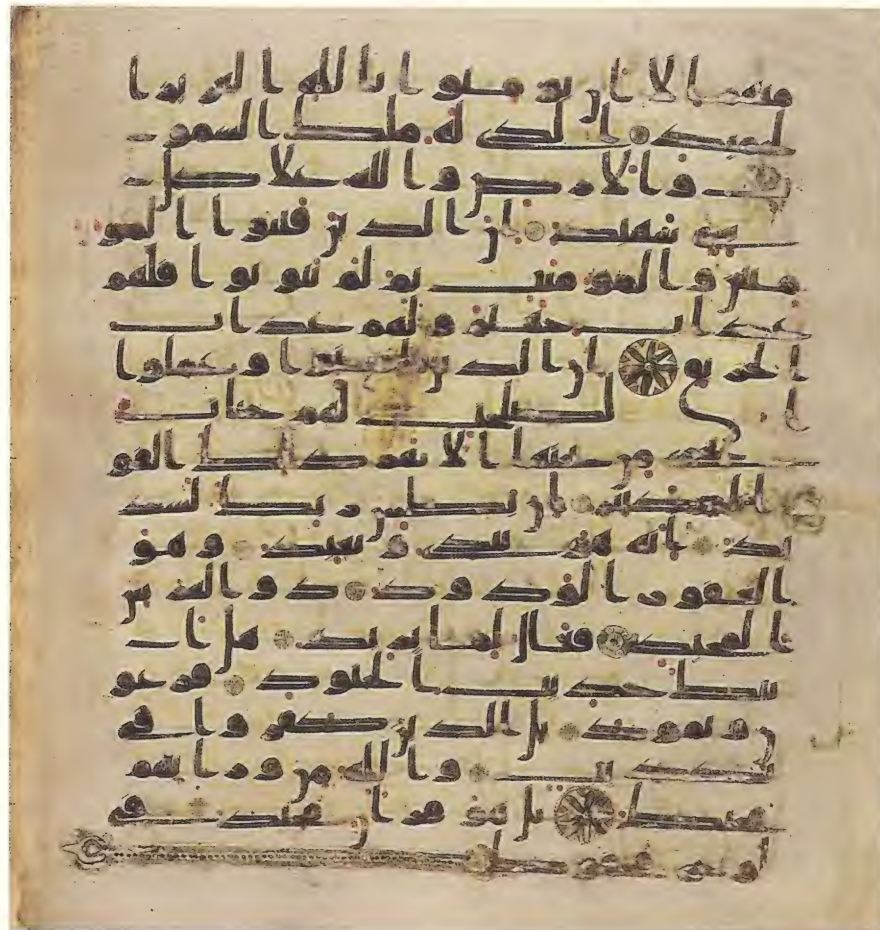 منهم الا ان يومنوا بالله العزيز ا
لحميد الذى له ملك السمو
ت والارض والله على كل
شى شهيد ان الذين فتنوا المو
منين والمومنت ثم لم يتوبوا فلهم
عذاب جهنم ولهم عذاب
الحريق ان الذين امنوا وعملوا
ا لصلحت لهم جنت
تجرى من تحتها الانهر ذلك الفو
ز الكبير ان بطش ربك لشد
يد انه هو يبدى ويعيد وهو
الغفور الودود ذو العرش
المجيد فعال لما يريد هل ا
تيك حديث الجنود فرعو
ن وثمود بل الذين كفروا فى
تكذيب والله من وراهم
محيط بل هو قران مجيد فى
لوح محفوظ